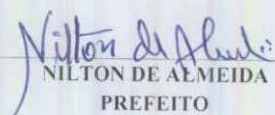 Nilton de Almei
NILTON DE ALMEIDA
PREFEITO